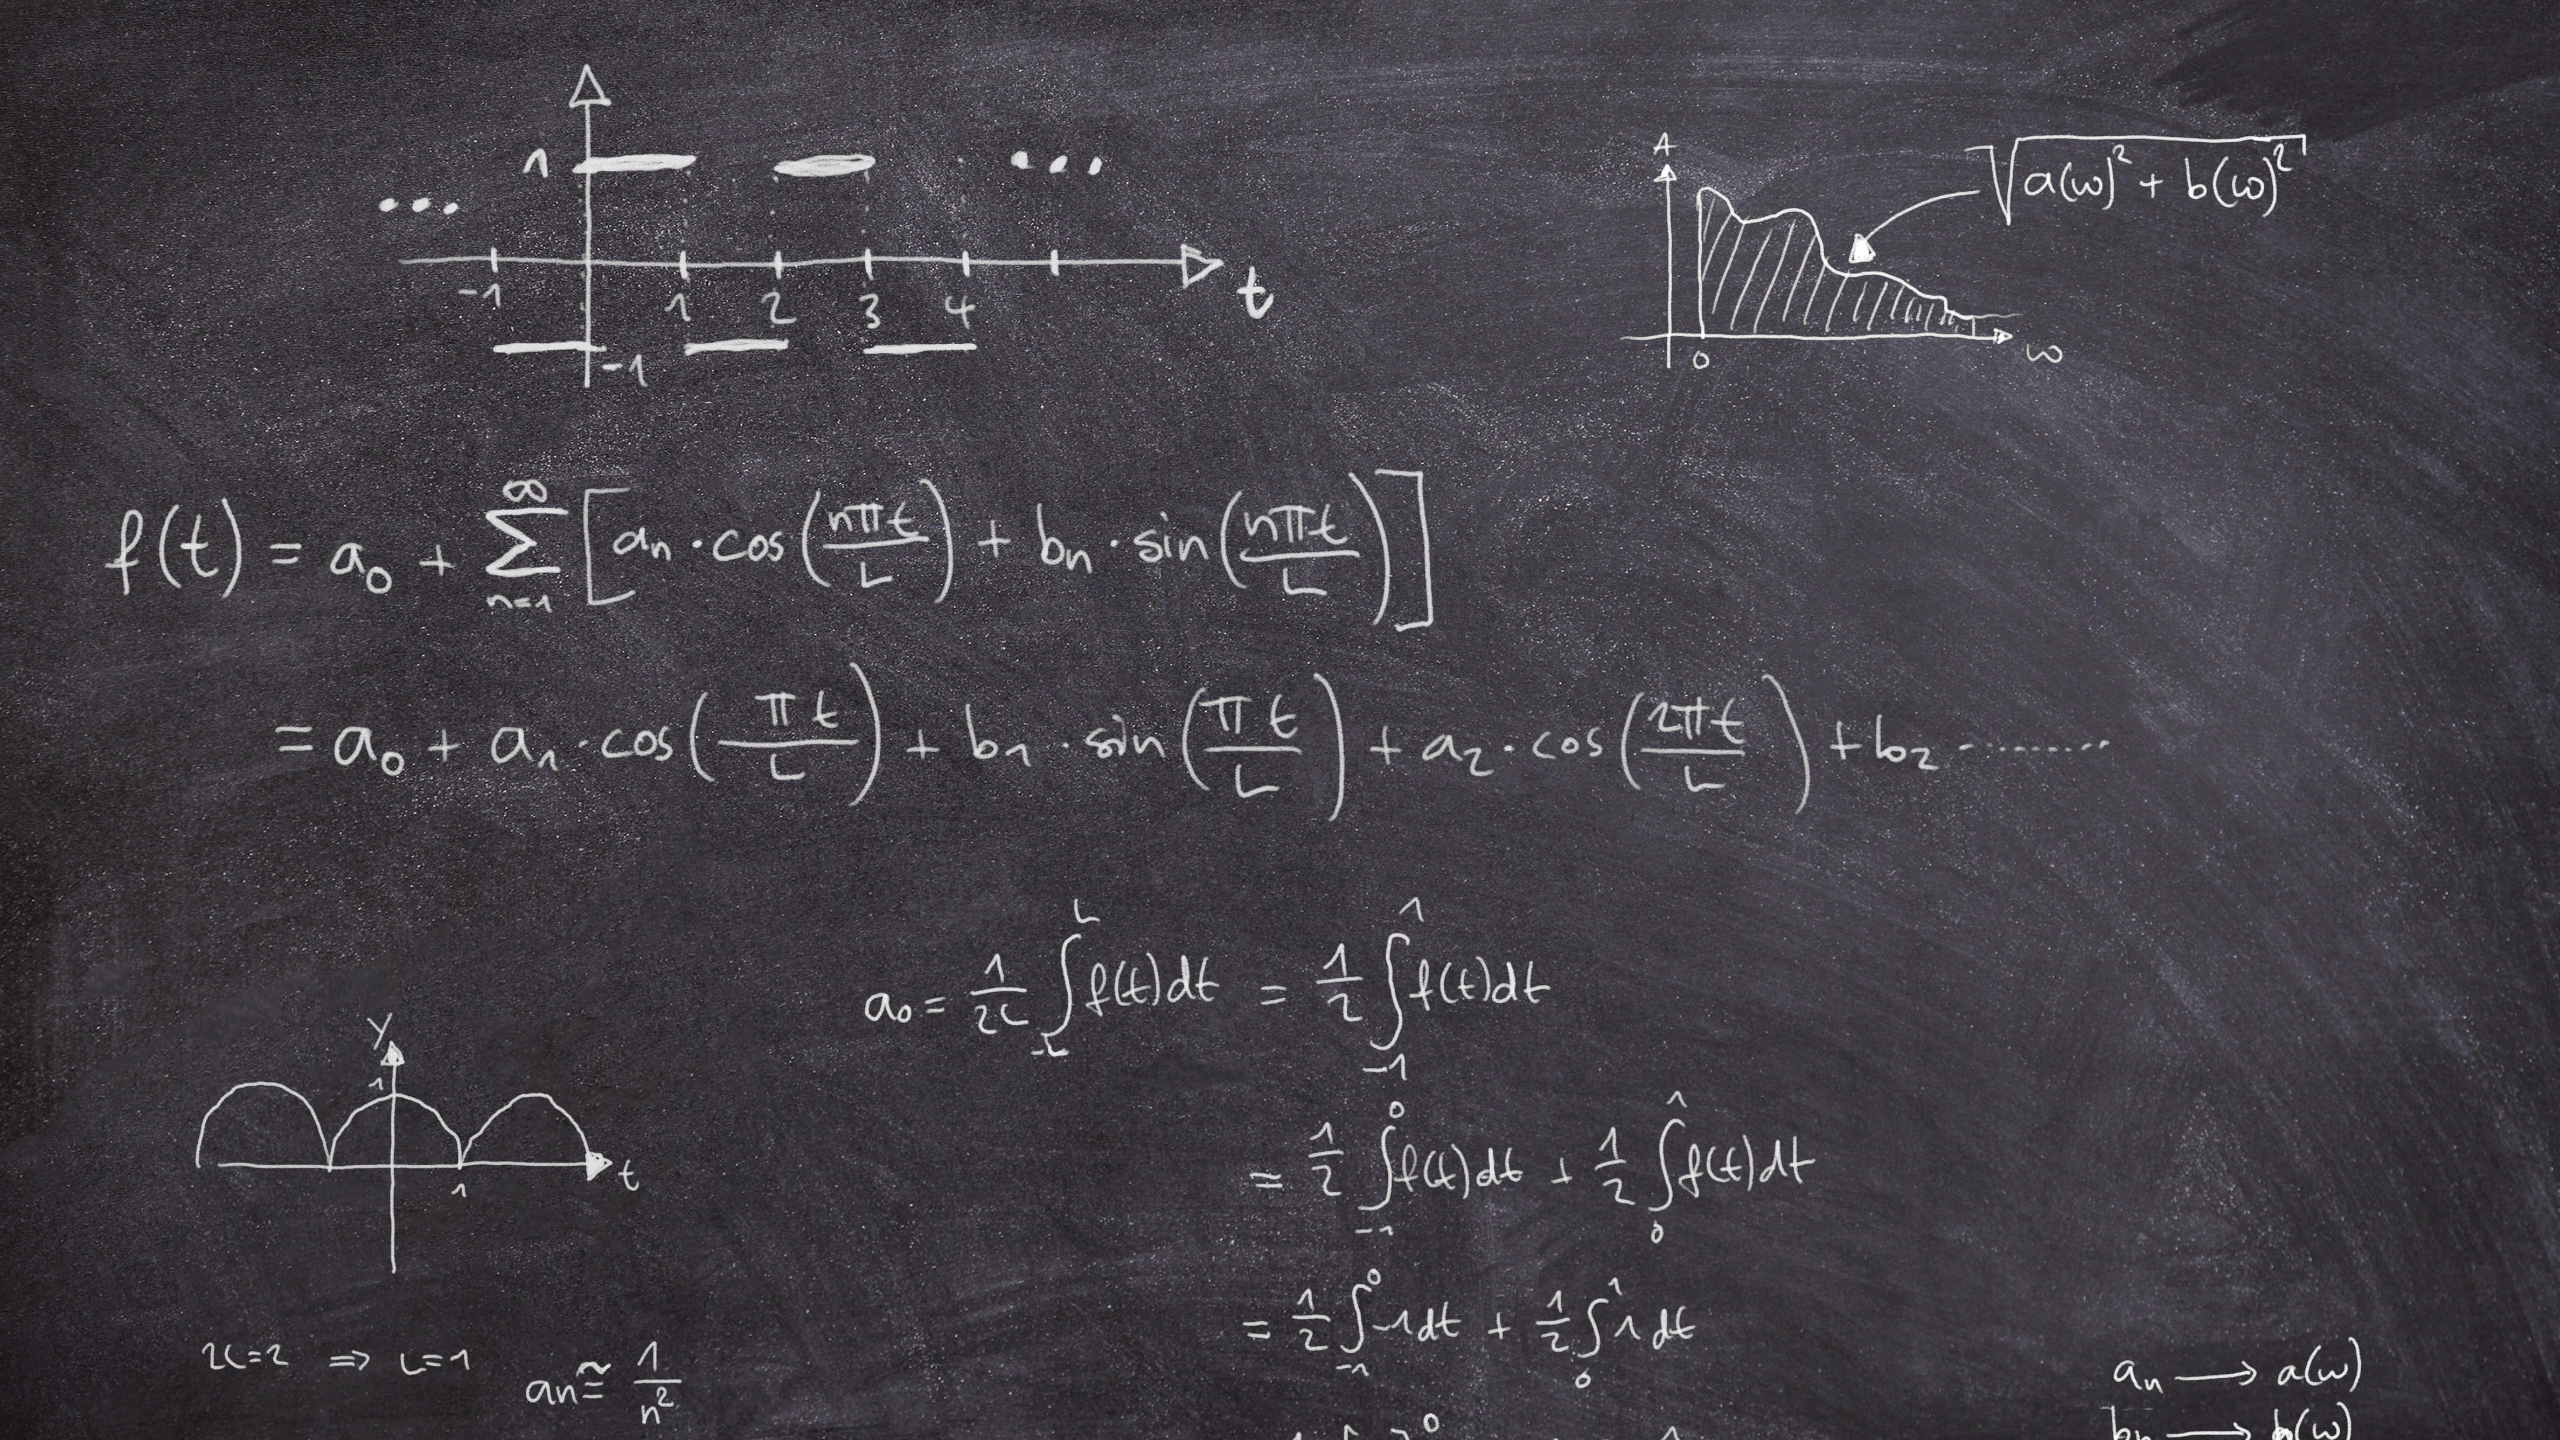 1
-1 1 2 3 4 t
-1
A
√(a(ω)² + b(ω)²)
0 ω
f(t) = a₀ + ∑ₙ₌₁^∞ [aₙ · cos(nπt/L) + bₙ · sin(nπt/L)]
= a₀ + a₁ · cos(πt/L) + b₁ · sin(πt/L) + a₂ · cos(2πt/L) + b₂ - ........
a₀ = 1/2L ∫₋L^L f(t)dt = 1/2 ∫₋₁^1 f(t)dt
= 1/2 ∫₋₁^0 f(t)dt + 1/2 ∫₀^1 f(t)dt
= 1/2 ∫₋₁^0 -1dt + 1/2 ∫₀^1 1dt
y
1
1 t
2L=2 ⇒ L=1
aₙ ≅ 1/n²
aₙ → a(ω)
bₙ → b(ω)